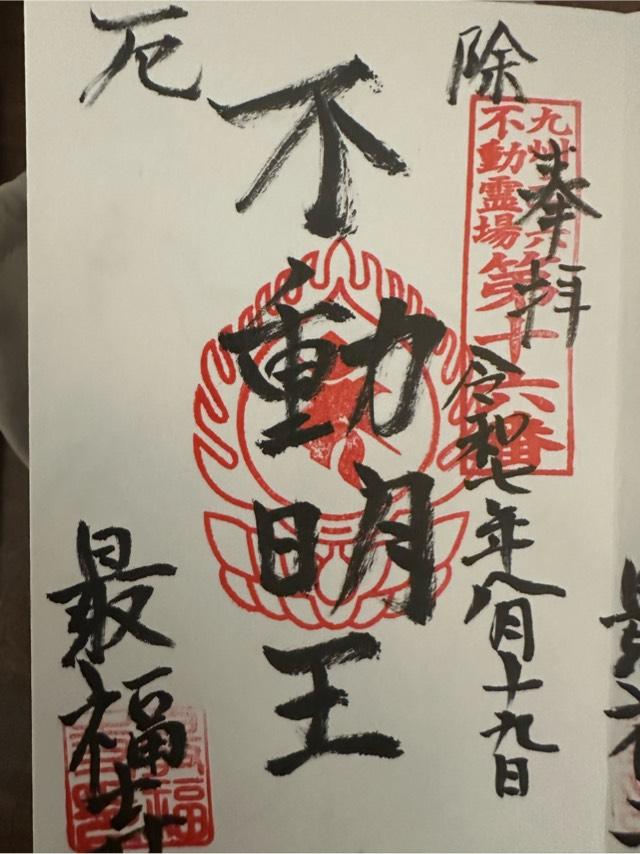 除
奉拝
令和七年八月十九日
九州三十六
不動霊場
第十六番
不動明王
厄
最福寺